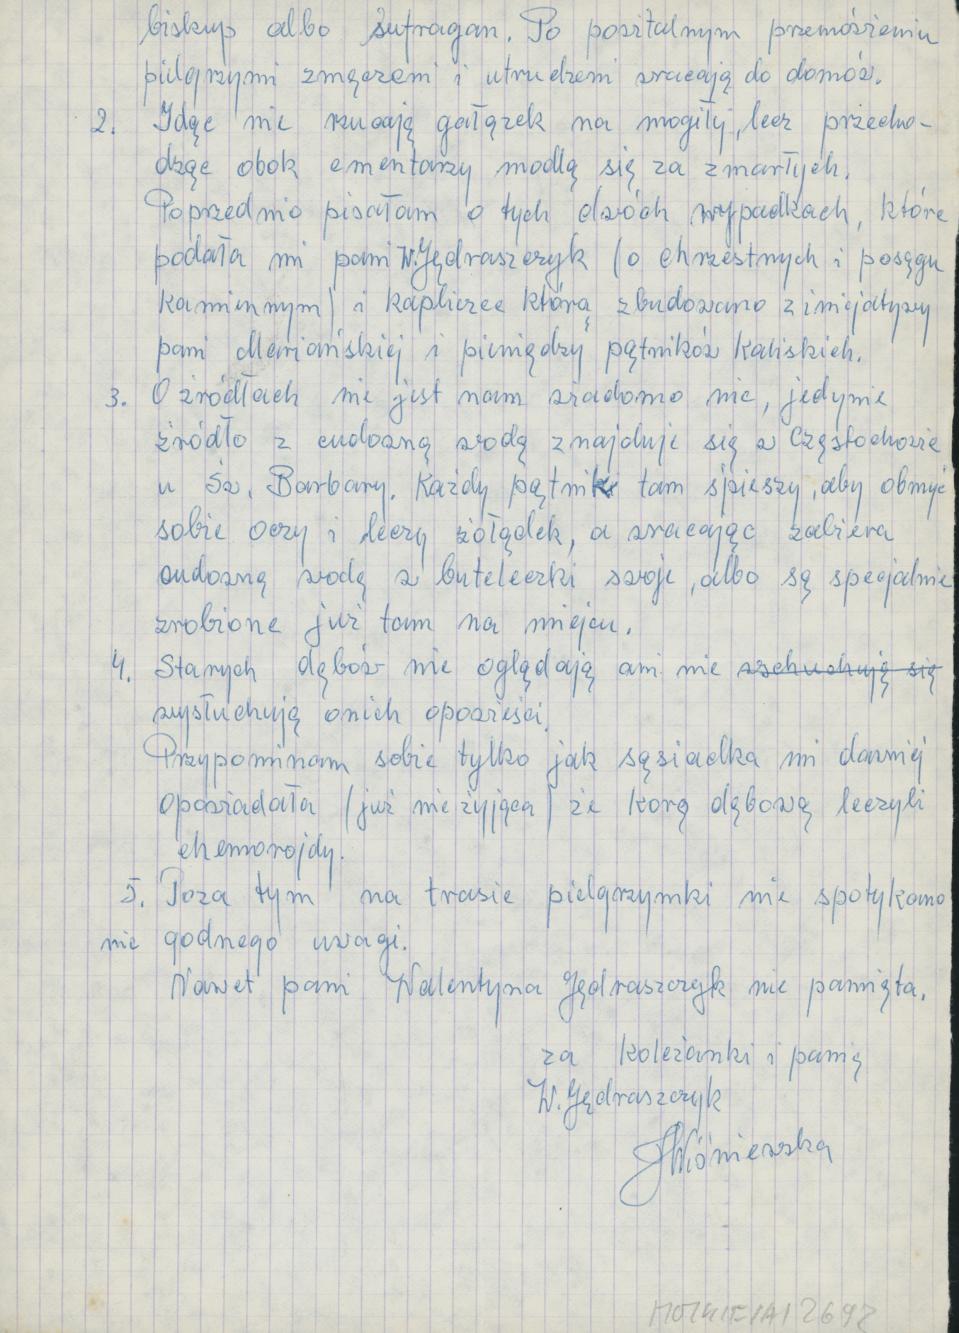 biskup albo sufragan. Po powitalnym przemówieniu
pielgrzymi zmęczeni i utrudzeni wracają do domów.
2. Idąc nie rzucają gałązek na mogiły, lecz przecho-
dząc obok cmentarzy modlą się za zmarłych.
Poprzednio pisałam o tych dwóch wypadkach, które
podała mi pani W. Jędraszczyk (o chrzestnych i posągu
kamiennym) i kapliczce którą zbudowano z inicjatywy
pani Mariańskiej i pieniędzy pątników Kaliskich.
3. O źródłach nie jest nam wiadomo nic, jedynie
źródło z cudowną wodą znajduje się w Częstochowie
u Św. Barbary. Każdy pątnik tam śpieszy, aby obmyć
sobie oczy i leczy żołądek, a wracając zabiera
cudowną wodę w buteleczki swoje, albo są specjalnie
zrobione już tam na miejscu.
4. Starych dębów nie oglądają ani nie wschuchują się
wysłuchują o nich opowieści.
Przypominam sobie tylko jak sąsiadka mi dawniej
opowiadała (już nie żyjąca) że korą dębową leczyli
chemorojdy.
5. Poza tym na trasie pielgrzymki nie spotykano
nic godnego uwagi.
Nawet pani Walentyna Jędraszczyk nie pamięta.
za koleżanki i panią
W. Jędraszczyk
Wiśniewska